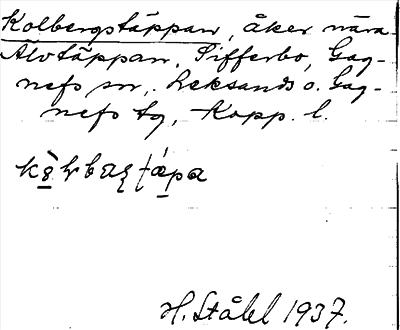 Kolbergstäppan, åker nära
Alvtäppan, Sifferbo, Gag-
nefs sn, Leksands o. Gag-
nefs tg, Kopp. l.
H. Ståhl 1937.